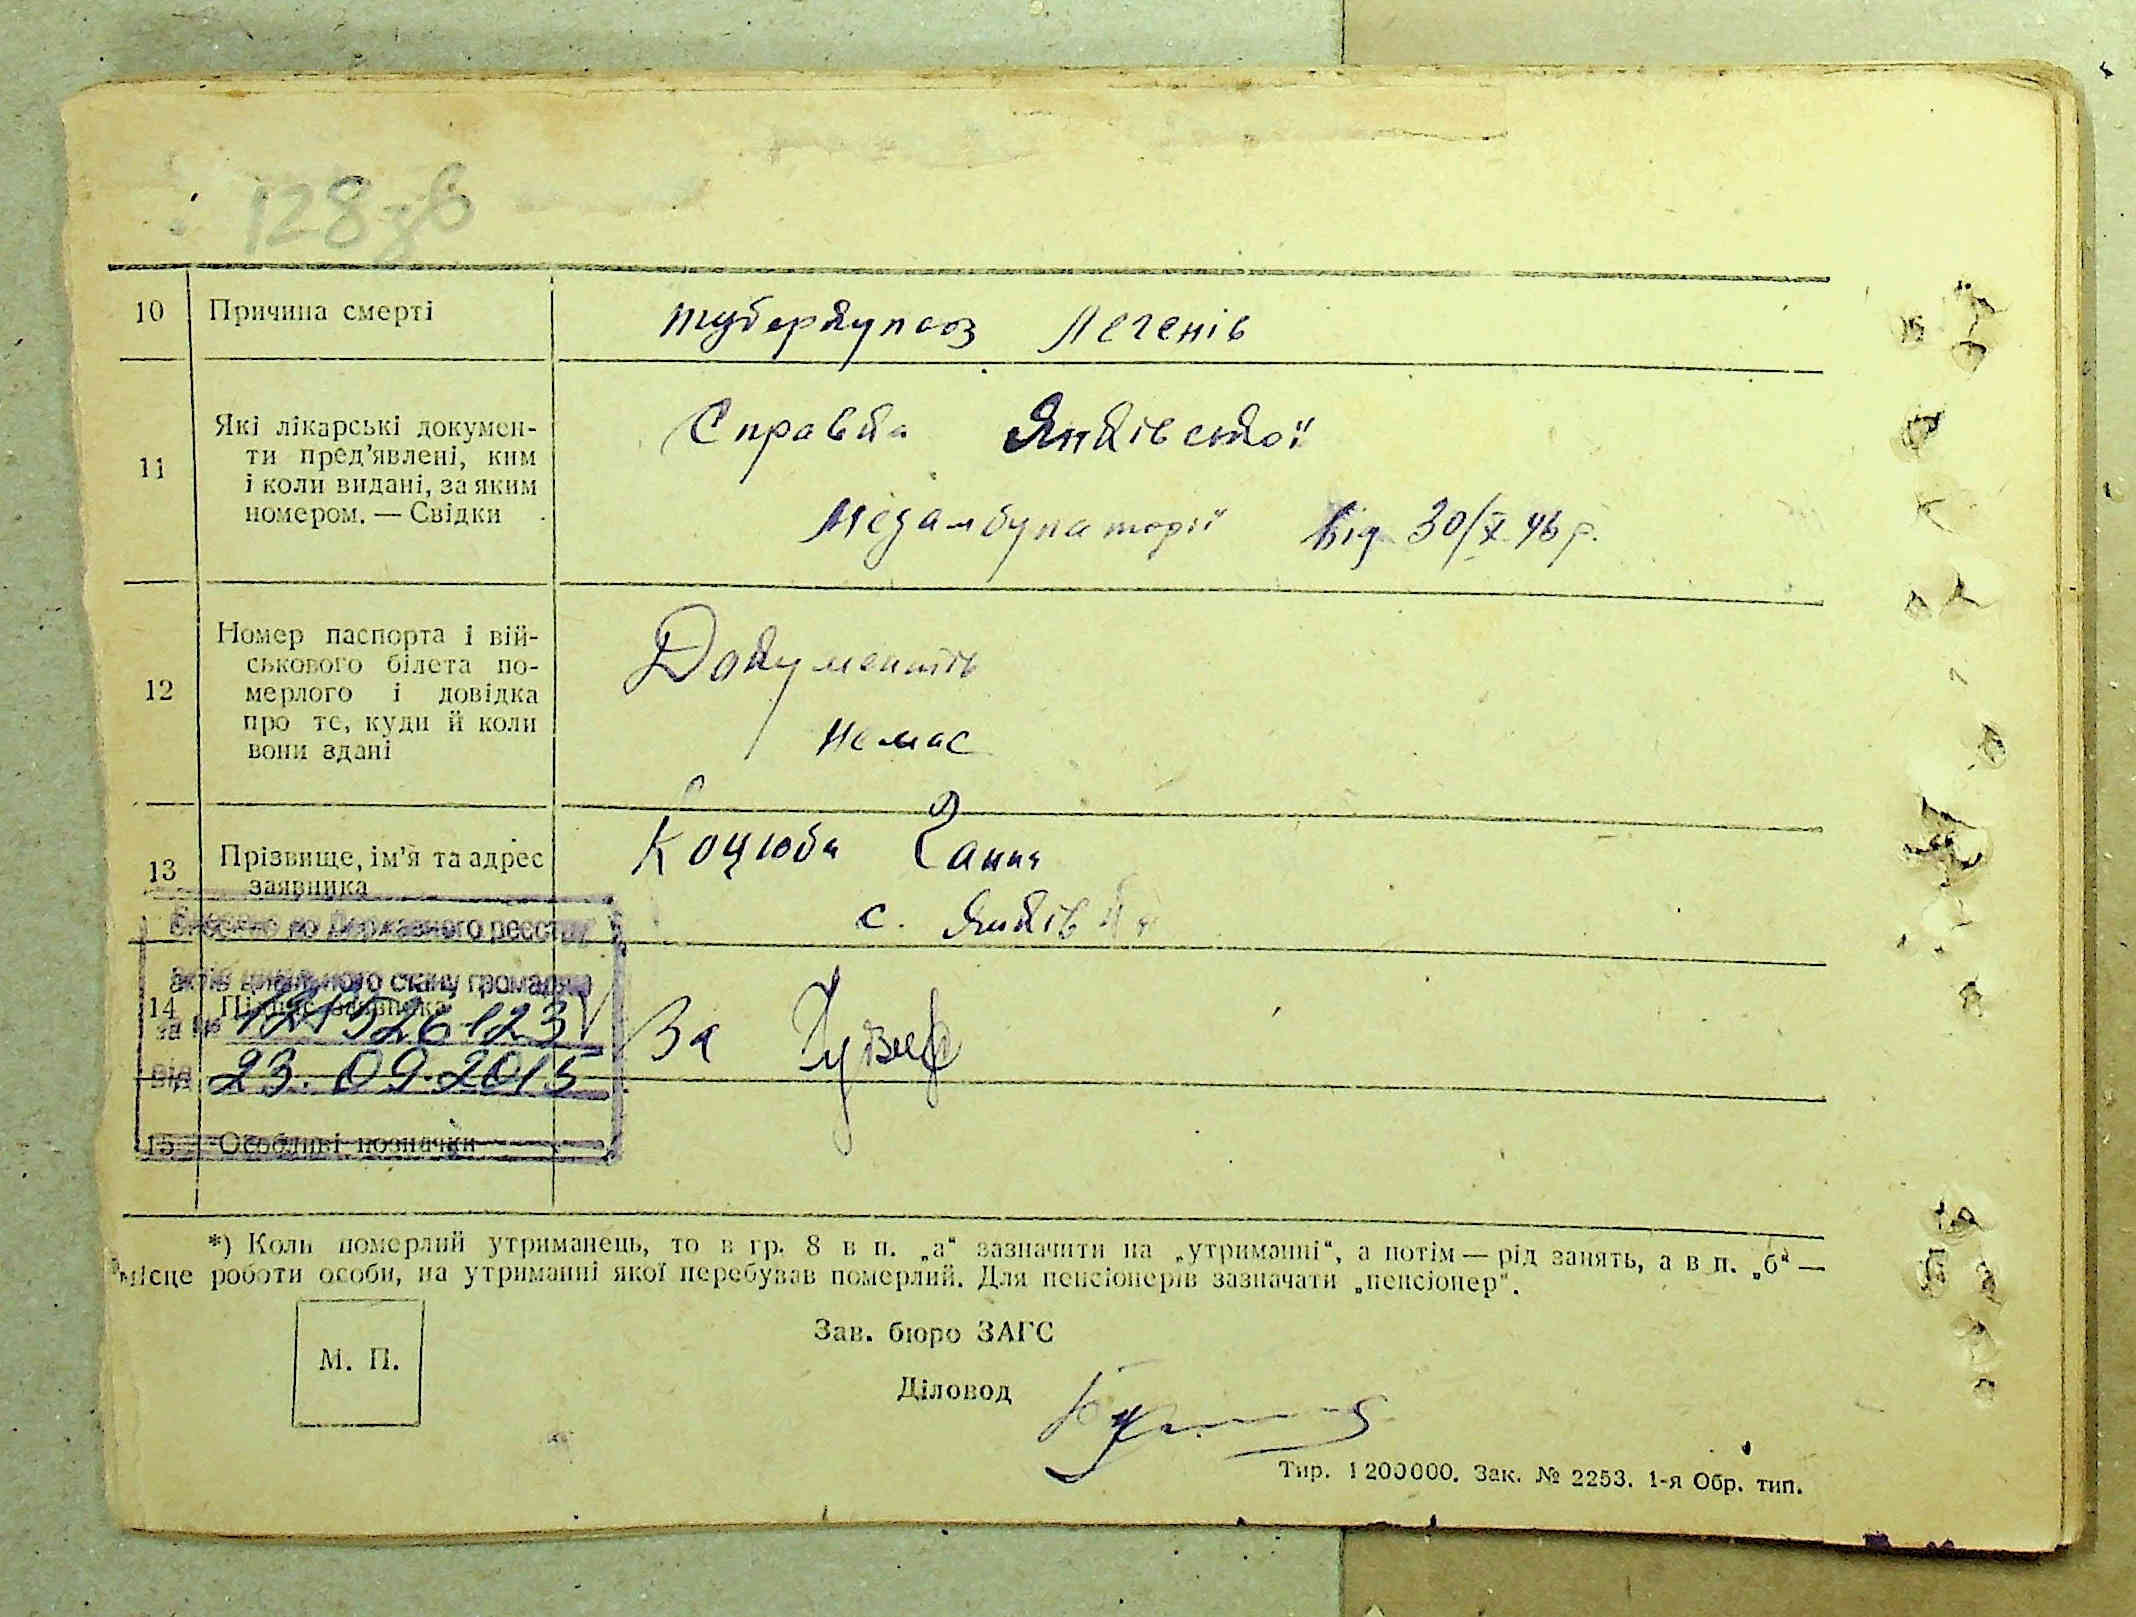 128зв
10 Причина смерті туберкульоз легенів
11 Які лікарські докумен-
ти пред'явлені, ким
і коли видані, за яким
номером. — Свідки
Справка Янківської
Медамбулаторії від 30/X 46 р.
12 Номер паспорта і вій-
ськового білета по-
мерлого і довідка
про те, куди й коли
вони здані
Документів
немає
13 Прізвище, ім'я та адрес
заявника
Коцюба Ганна
с. Янківка
Внесено до Державного реєстру
актів цивільного стану громадян
14 Підпис заявника
за №
від 23.09.2015
За
15 Особливі позначки
*) Коли померлий утриманець, то в гр. 8 в п. „а“ зазначити на „утриманні“, а потім — рід занять, а в п. „б“ —
місце роботи особи, на утриманні якої перебував померлий. Для пенсіонерів зазначати „пенсіонер“.
М. П.
Зав. бюро ЗАГС
Діловод
Тир. 1200000. Зак. № 2253. 1-я Обр. тип.